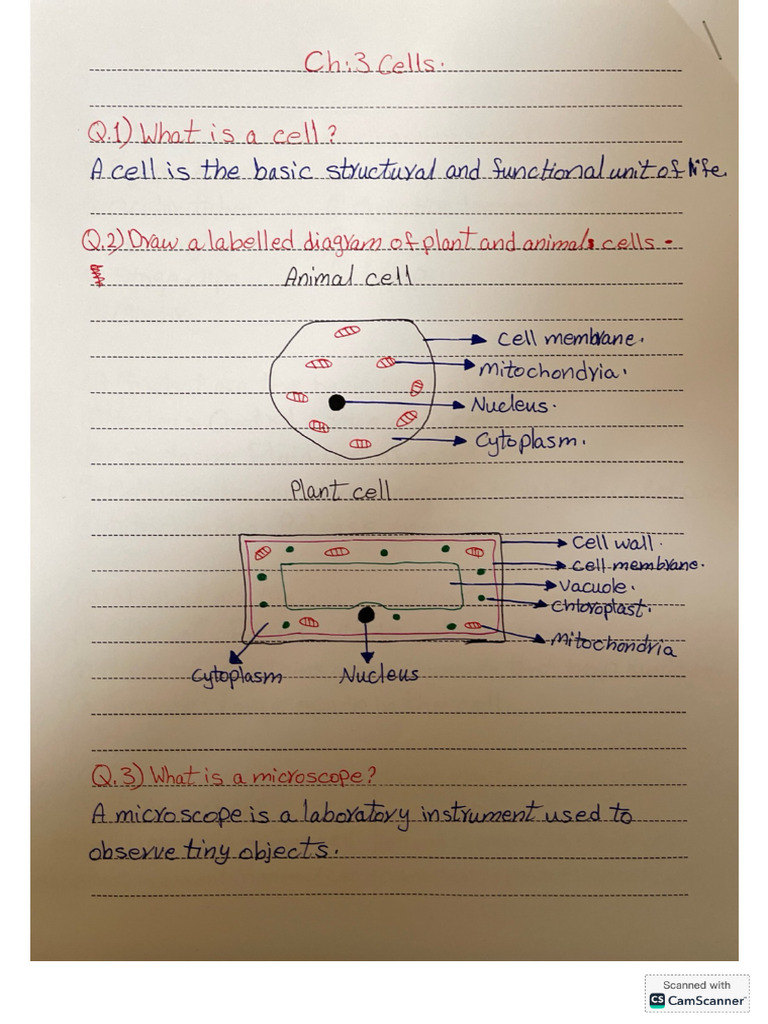 Ch:3 Cells.
Q.1) What is a cell?
A cell is the basic structural and functional unit of life.
Q.2) Draw a labelled diagram of plant and animals cells.
Animal cell
Cell membrane.
Mitochondria.
Nucleus.
Cytoplasm.
Plant cell
Cell wall.
Cell membrane.
Vacuole.
Chloroplast.
Mitochondria
Cytoplasm Nucleus
Q.3) What is a microscope?
A microscope is a laboratory instrument used to
observe tiny objects.
Scanned with
CS CamScanner